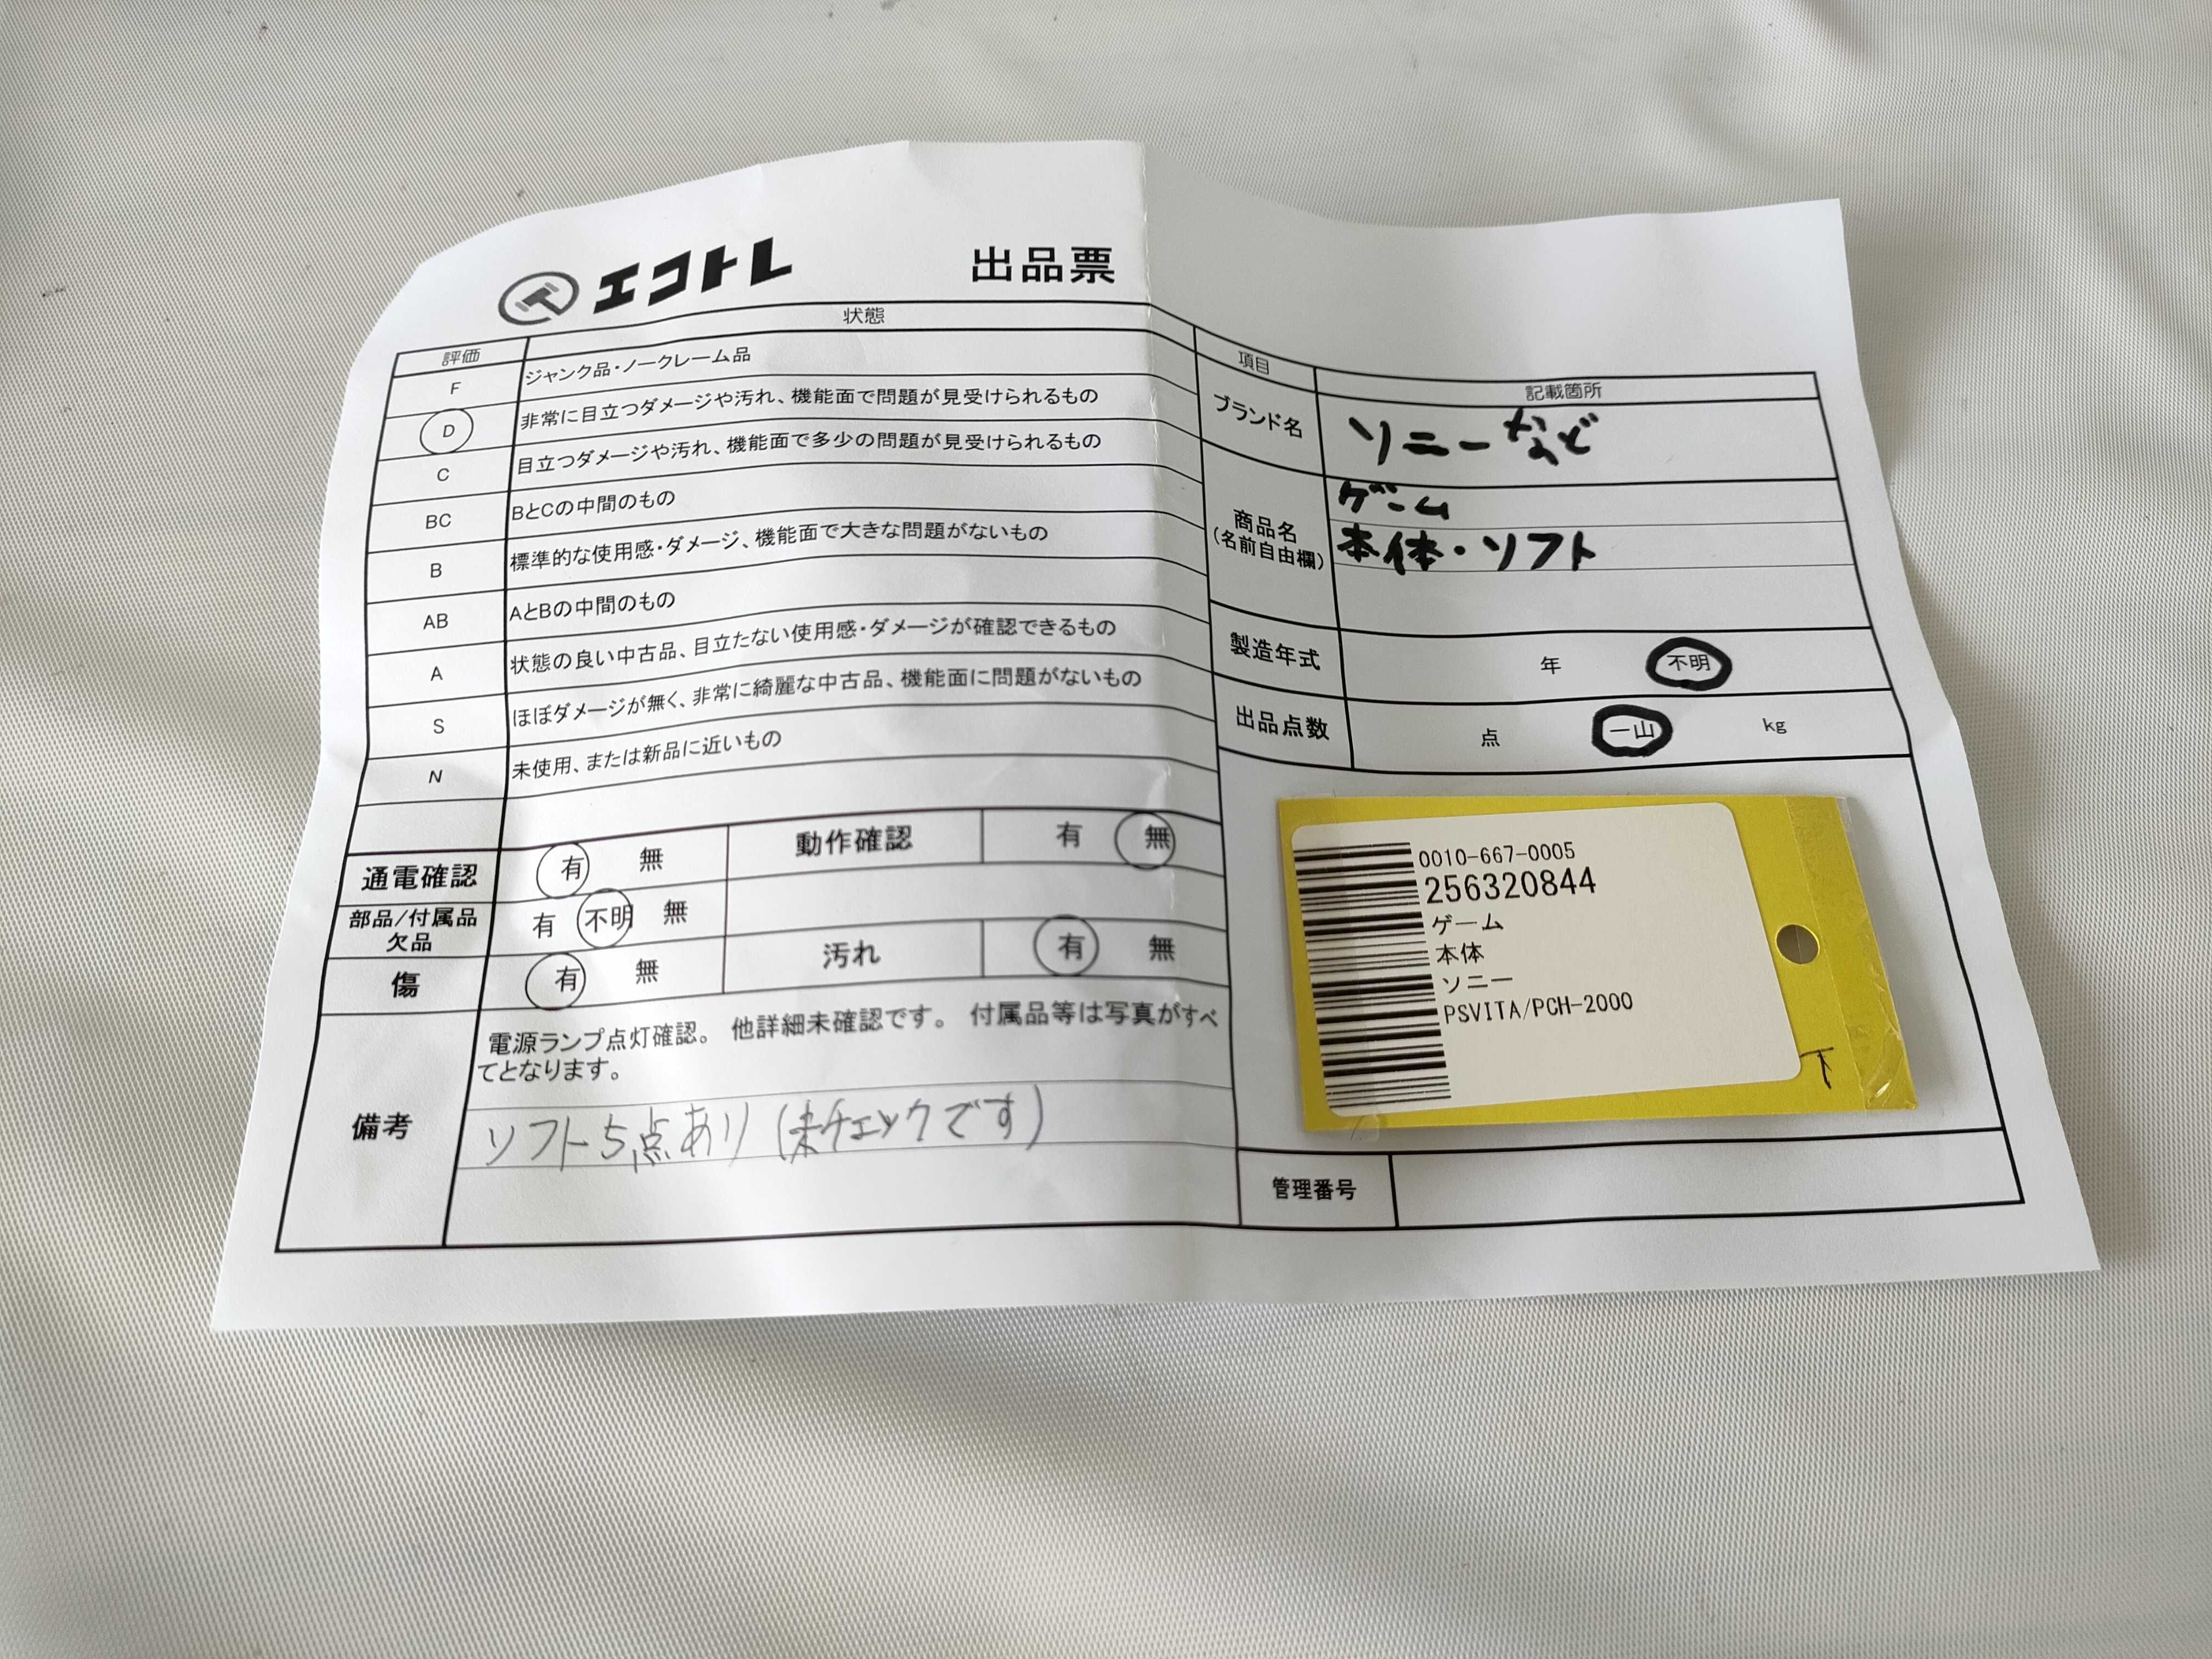 エコトレ 出品票
評価 状態
F ジャンク品・ノークレーム品
D 非常に目立つダメージや汚れ、機能面で問題が見受けられるもの
C 目立つダメージや汚れ、機能面で多少の問題が見受けられるもの
BC BとCの中間のもの
B 標準的な使用感・ダメージ、機能面で大きな問題がないもの
AB AとBの中間のもの
A 状態の良い中古品、目立たない使用感・ダメージが確認できるもの
S ほぼダメージが無く、非常に綺麗な中古品、機能面に問題がないもの
N 未使用、または新品に近いもの
通電確認 有 無 動作確認 有 無
部品/付属品
欠品 有 不明 無
傷 有 無 汚れ 有 無
備考
電源ランプ点灯確認。 他詳細未確認です。 付属品等は写真がすべ
てとなります。
ソフト5点あり(未チェックです)
項目 記載箇所
ブランド名 ソニーなど
商品名
(名前自由欄)
ゲーム
本体・ソフト
製造年式 年 不明
出品点数 点 一山 kg
0010-667-0005
256320844
ゲーム
本体
ソニー
PSVITA/PCH-2000
下
管理番号